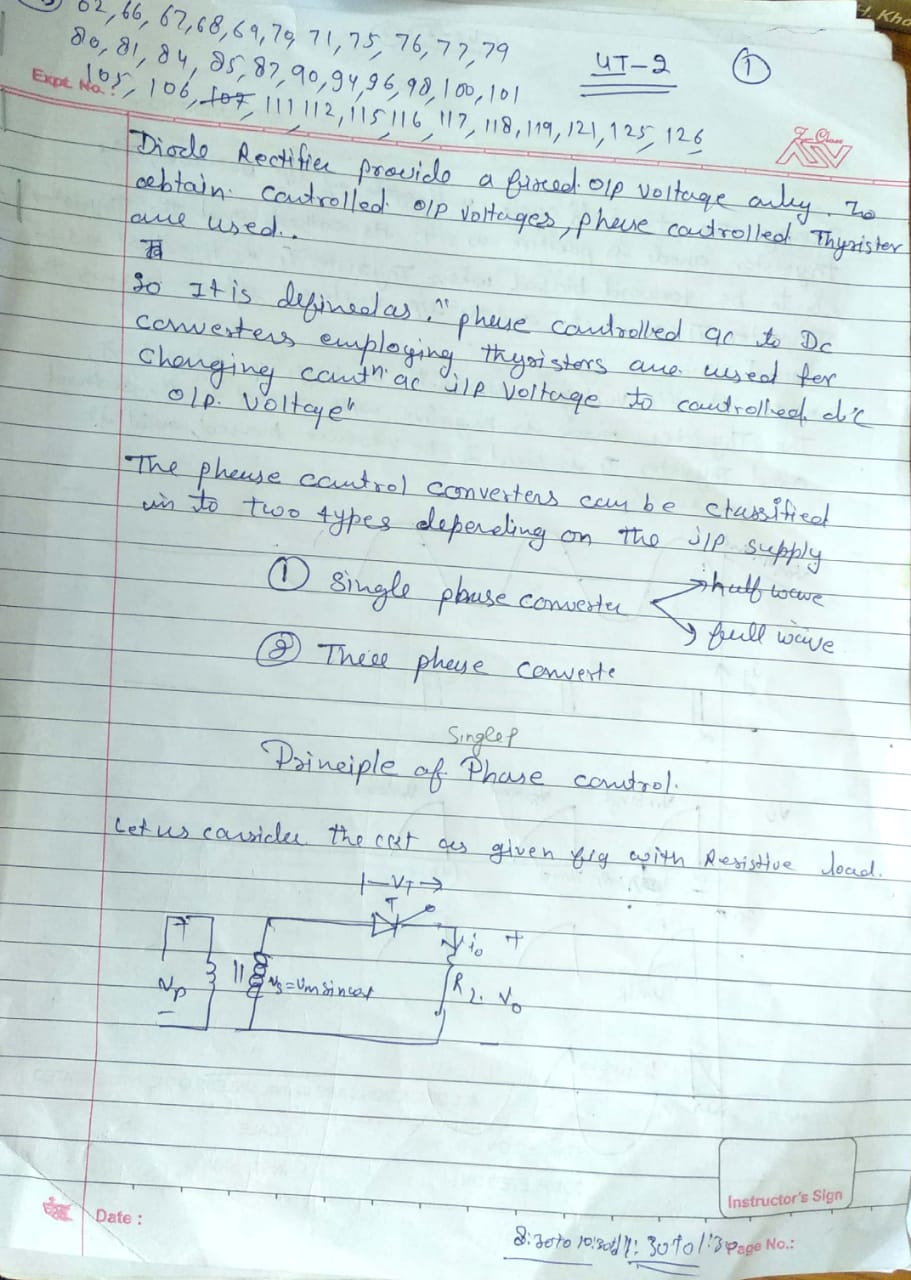 62, 66, 67, 68, 69, 70, 71, 75, 76, 77, 79
80, 81, 84, 85, 87, 90, 94, 96, 98, 100, 101
105, 106, 107, 111 112, 115, 116, 117, 118, 119, 121, 125, 126
UT-2 ①
Expt. No. :
Diode Rectifier provide a fixed o/p voltage only. To
obtain controlled o/p voltages, phase controlled Thyrister
are used.
So It is defined as. "phase controlled ac to Dc
converters employing thyristors are used for
changing contn. ac i/p voltage to controlled d.c
o/p. voltage"
The phause control converters can be classified
in to two types depending on the i/p supply
① single phause converter
half wave
full wave
② Three phase converte
Single P
Principle of Phase control.
Let us consider the ckt as given fig with Resistive load.
VT
T
io +
+
Vp
Vs = Vm sin ωt
R L. Vo
-
Instructor's Sign
Date :
8:30 to 10:30/11:30 to 1:30
Page No.: